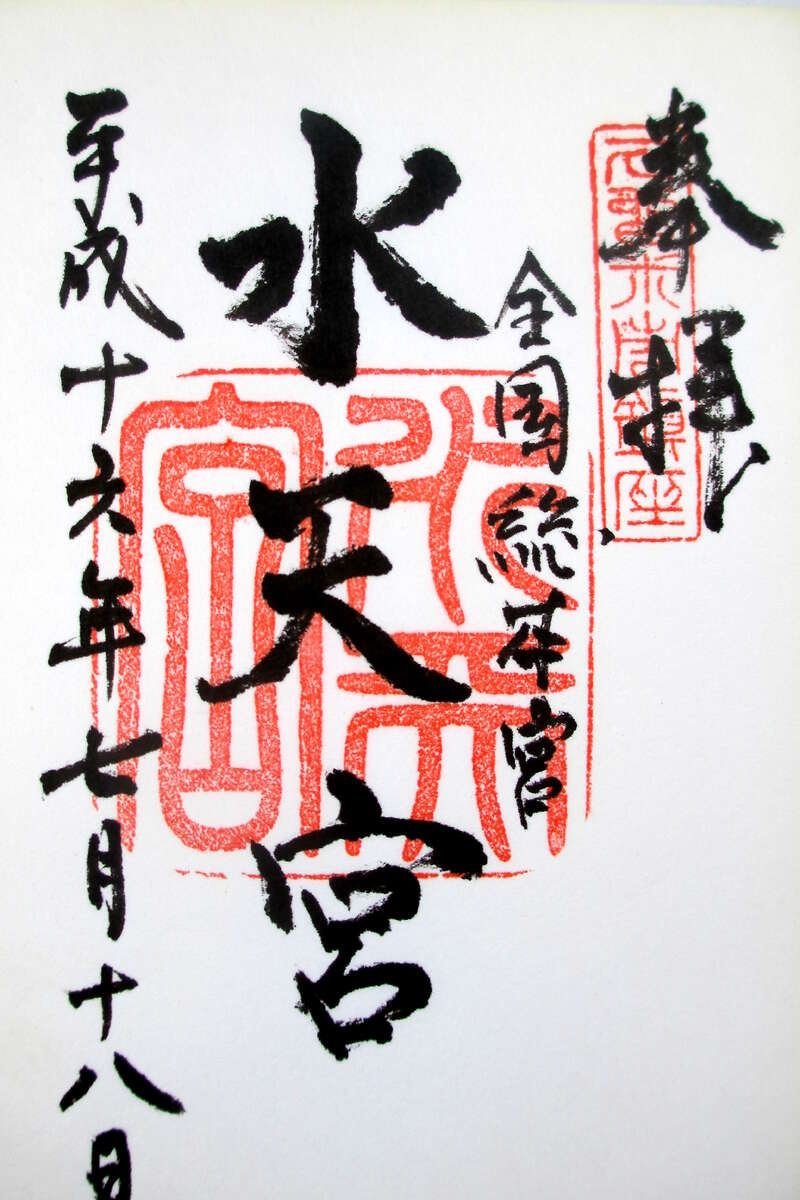 奉拝
全国総本宮
水天宮
水天宮
平成十六年七月十八日